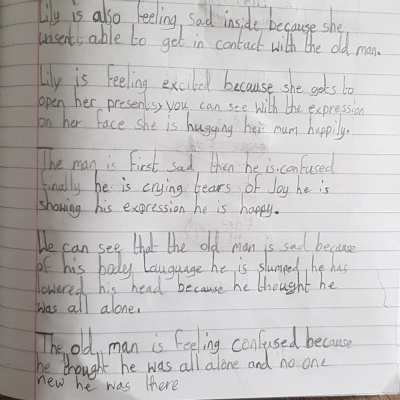 Lily is also feeling sad inside because she
wasent able to get in contact with the old man.
Lily is feeling excited because she gets to
open her presents, you can see with the expression
on her face she is hugging her mum happily.
The man is first sad then he is confused
finally he is crying tears of Joy he is
showing his expression he is happy.
We can see that the old man is sad because
of his body language he is slumped he has
lowered his head because he thought he
was all alone.
The old man is feeling confused because
he thought he was all alone and no one
new he was there